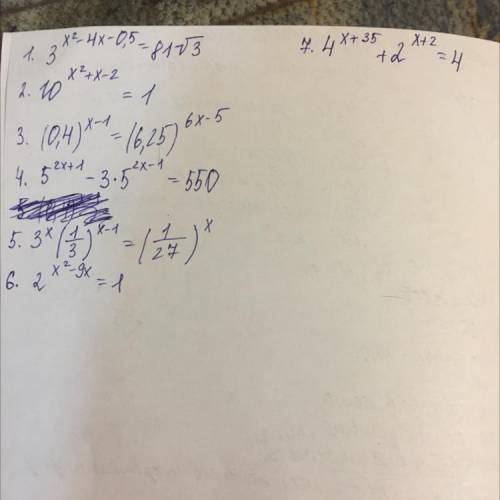 1. 3^(x²-4x-0,5) = 81√3
2. 10^(x²+x-2) = 1
3. (0,4)^(x-1) = (6,25)^(6x-5)
4. 5^(2x+1) - 3·5^(2x-1) = 550
5. 3^x (1/3)^(x-1) = (1/27)^x
6. 2^(x²-9x) = 1
7. 4^(x+35) + 2^(x+2) = 4